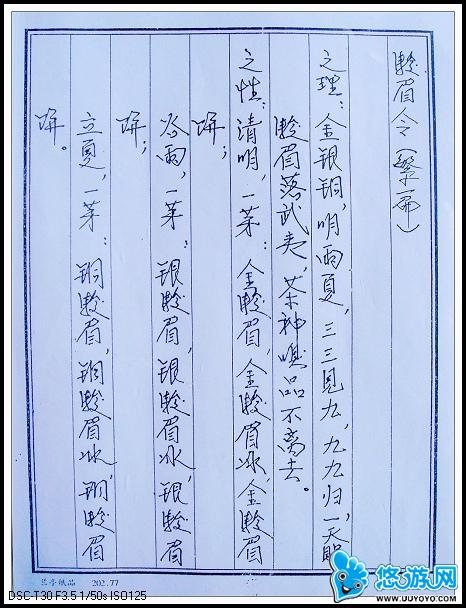 骏眉令（
之理：金银铜，明雨夏，三三见九，九九归一天
骏眉落武夷，茶神嗅品不离去。
之性：清明，一芽：金骏眉，金骏眉冰，金骏眉
饼；
谷雨，一芽：银骏眉，银骏眉冰，银骏眉
饼；
立夏，一芽：铜骏眉，铜骏眉冰，铜骏眉
饼。
兰亭纸品 202.77
悠游网
WWW.UUYOYO.COM
DSC-T30 F3.5 1/50s ISO125